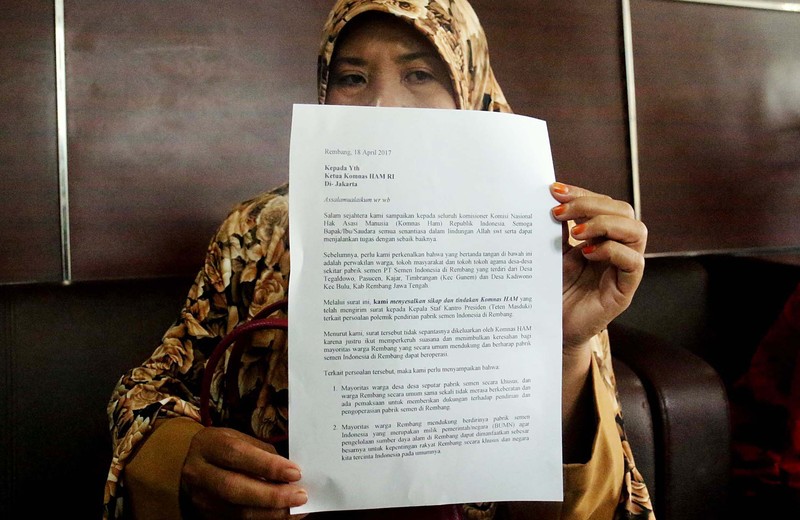 Rembang, 18 April 2017
Kepada Yth
Ketua Komnas HAM RI
Di- Jakarta
Assalamualaikum wr wb
Salam sejahtera kami sampaikan kepada seluruh komisioner Komisi Nasional
Hak Asasi Manusia (Komnas Ham) Republik Indonesia. Semoga
Bapak/Ibu/Saudara semua senantiasa dalam lindungan Allah swt serta dapat
menjalankan tugas dengan sebaik baiknya.
Sebelumnya, perlu kami perkenalkan bahwa yang bertanda tangan di bawah ini
adalah perwakilan warga, tokoh masyarakat dan tokoh tokoh agama desa-desa
sekitar pabrik semen PT Semen Indonesia di Rembang yang terdiri dari Desa
Tegaldowo, Pasucen, Kajar, Timbrangan (Kec Gunem) dan Desa Kadiwono
Kec Bulu, Kab Rembang Jawa Tengah.
Melalui surat ini, kami menyesalkan sikap dan tindakan Komnas HAM yang
telah mengirim surat kepada Kepala Staf Kantor Presiden (Teten Masduki)
terkait persoalan polemik pendirian pabrik semen Indonesia di Rembang.
Menurut kami, surat tersebut tidak sepantasnya dikeluarkan oleh Komnas HAM
karena justru ikut memperkeruh suasana dan menimbulkan keresahan bagi
mayoritas warga Rembang yang secara umum mendukung dan berharap pabrik
semen Indonesia di Rembang dapat beroperasi.
Terkait persoalan tersebut, maka kami perlu menyampaikan bahwa:
1. Mayoritas warga desa desa seputar pabrik semen secara khusus, dan
warga Rembang secara umum sama sekali tidak merasa berkeberatan dan
ada pemaksaan untuk memberikan dukungan terhadap pendirian dan
pengoperasian pabrik semen di Rembang.
2. Mayoritas warga Rembang mendukung berdirinya pabrik semen
Indonesia yang merupakan milik pemerintah/negara (BUMN) agar
pengelolaan sumber daya alam di Rembang dapat dimanfaatkan sebesar
besarnya untuk kepentingan rakyat Rembang secara khusus dan negara
kita tercinta Indonesia pada umumnya.